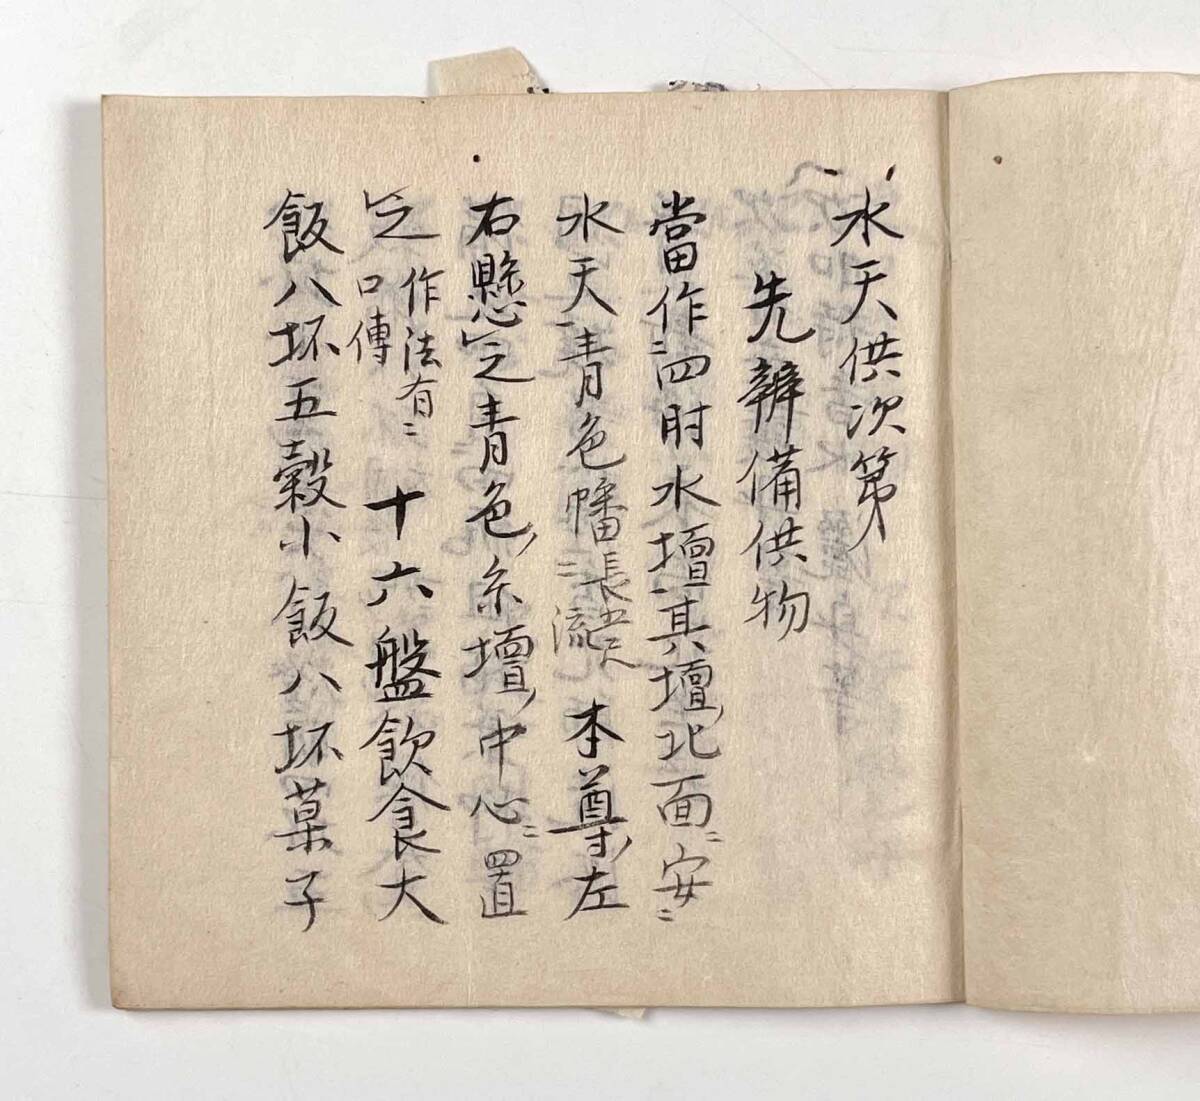 水天供次第
先辨備供物
當作ニ四肘水壇其壇ノ北面ニ安ニ
水天青色幡長五尺二流本尊ノ左
右懸之青色ノ糸壇ノ中心ニ置
之作法有ニ口傳十六盤飲食大
飯八坏五穀小飯八坏菓子